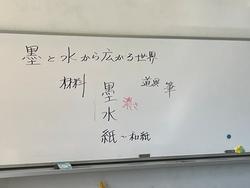 墨と水から広がる世界
材料
墨
水
濃さ
紙~和紙
道具 筆